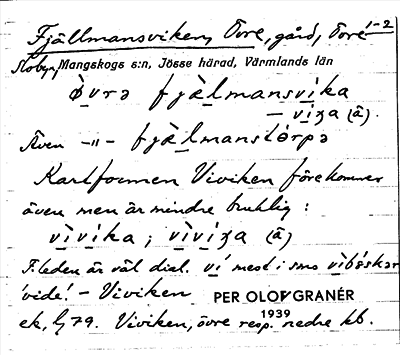 Fjällmansviken, Övre, gård, Övre 1-2
Slobyn, Mangskogs s:n, Jösse härad, Värmlands län
ø̀vrə fjæ̀lmansvìka
– vìʒa (ä).
Även –"– fjæ̀lmanstórpə
Kartformen Viviken förekommer
även men är mindre bruklig:
vìvíka ; vìvíʒa (ä)
F.leden är väl dial. ví med i sms
'vide'. – Viviken
PER OLOV GRANÉR
1939
ek, 79. Viviken, övre resp. nedre kb.